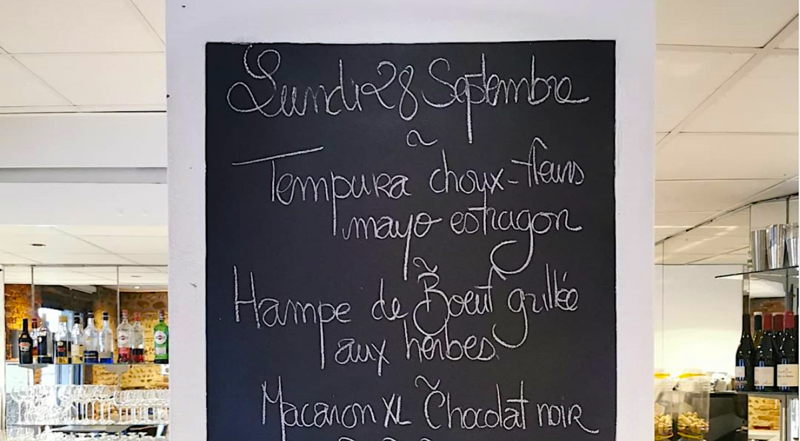 Lundi 28 Septembre
~
Tempura choux-fleurs
mayo estragon
~
Hampe de Boeuf grillée
aux herbes
~
Macaron XL Chocolat noir